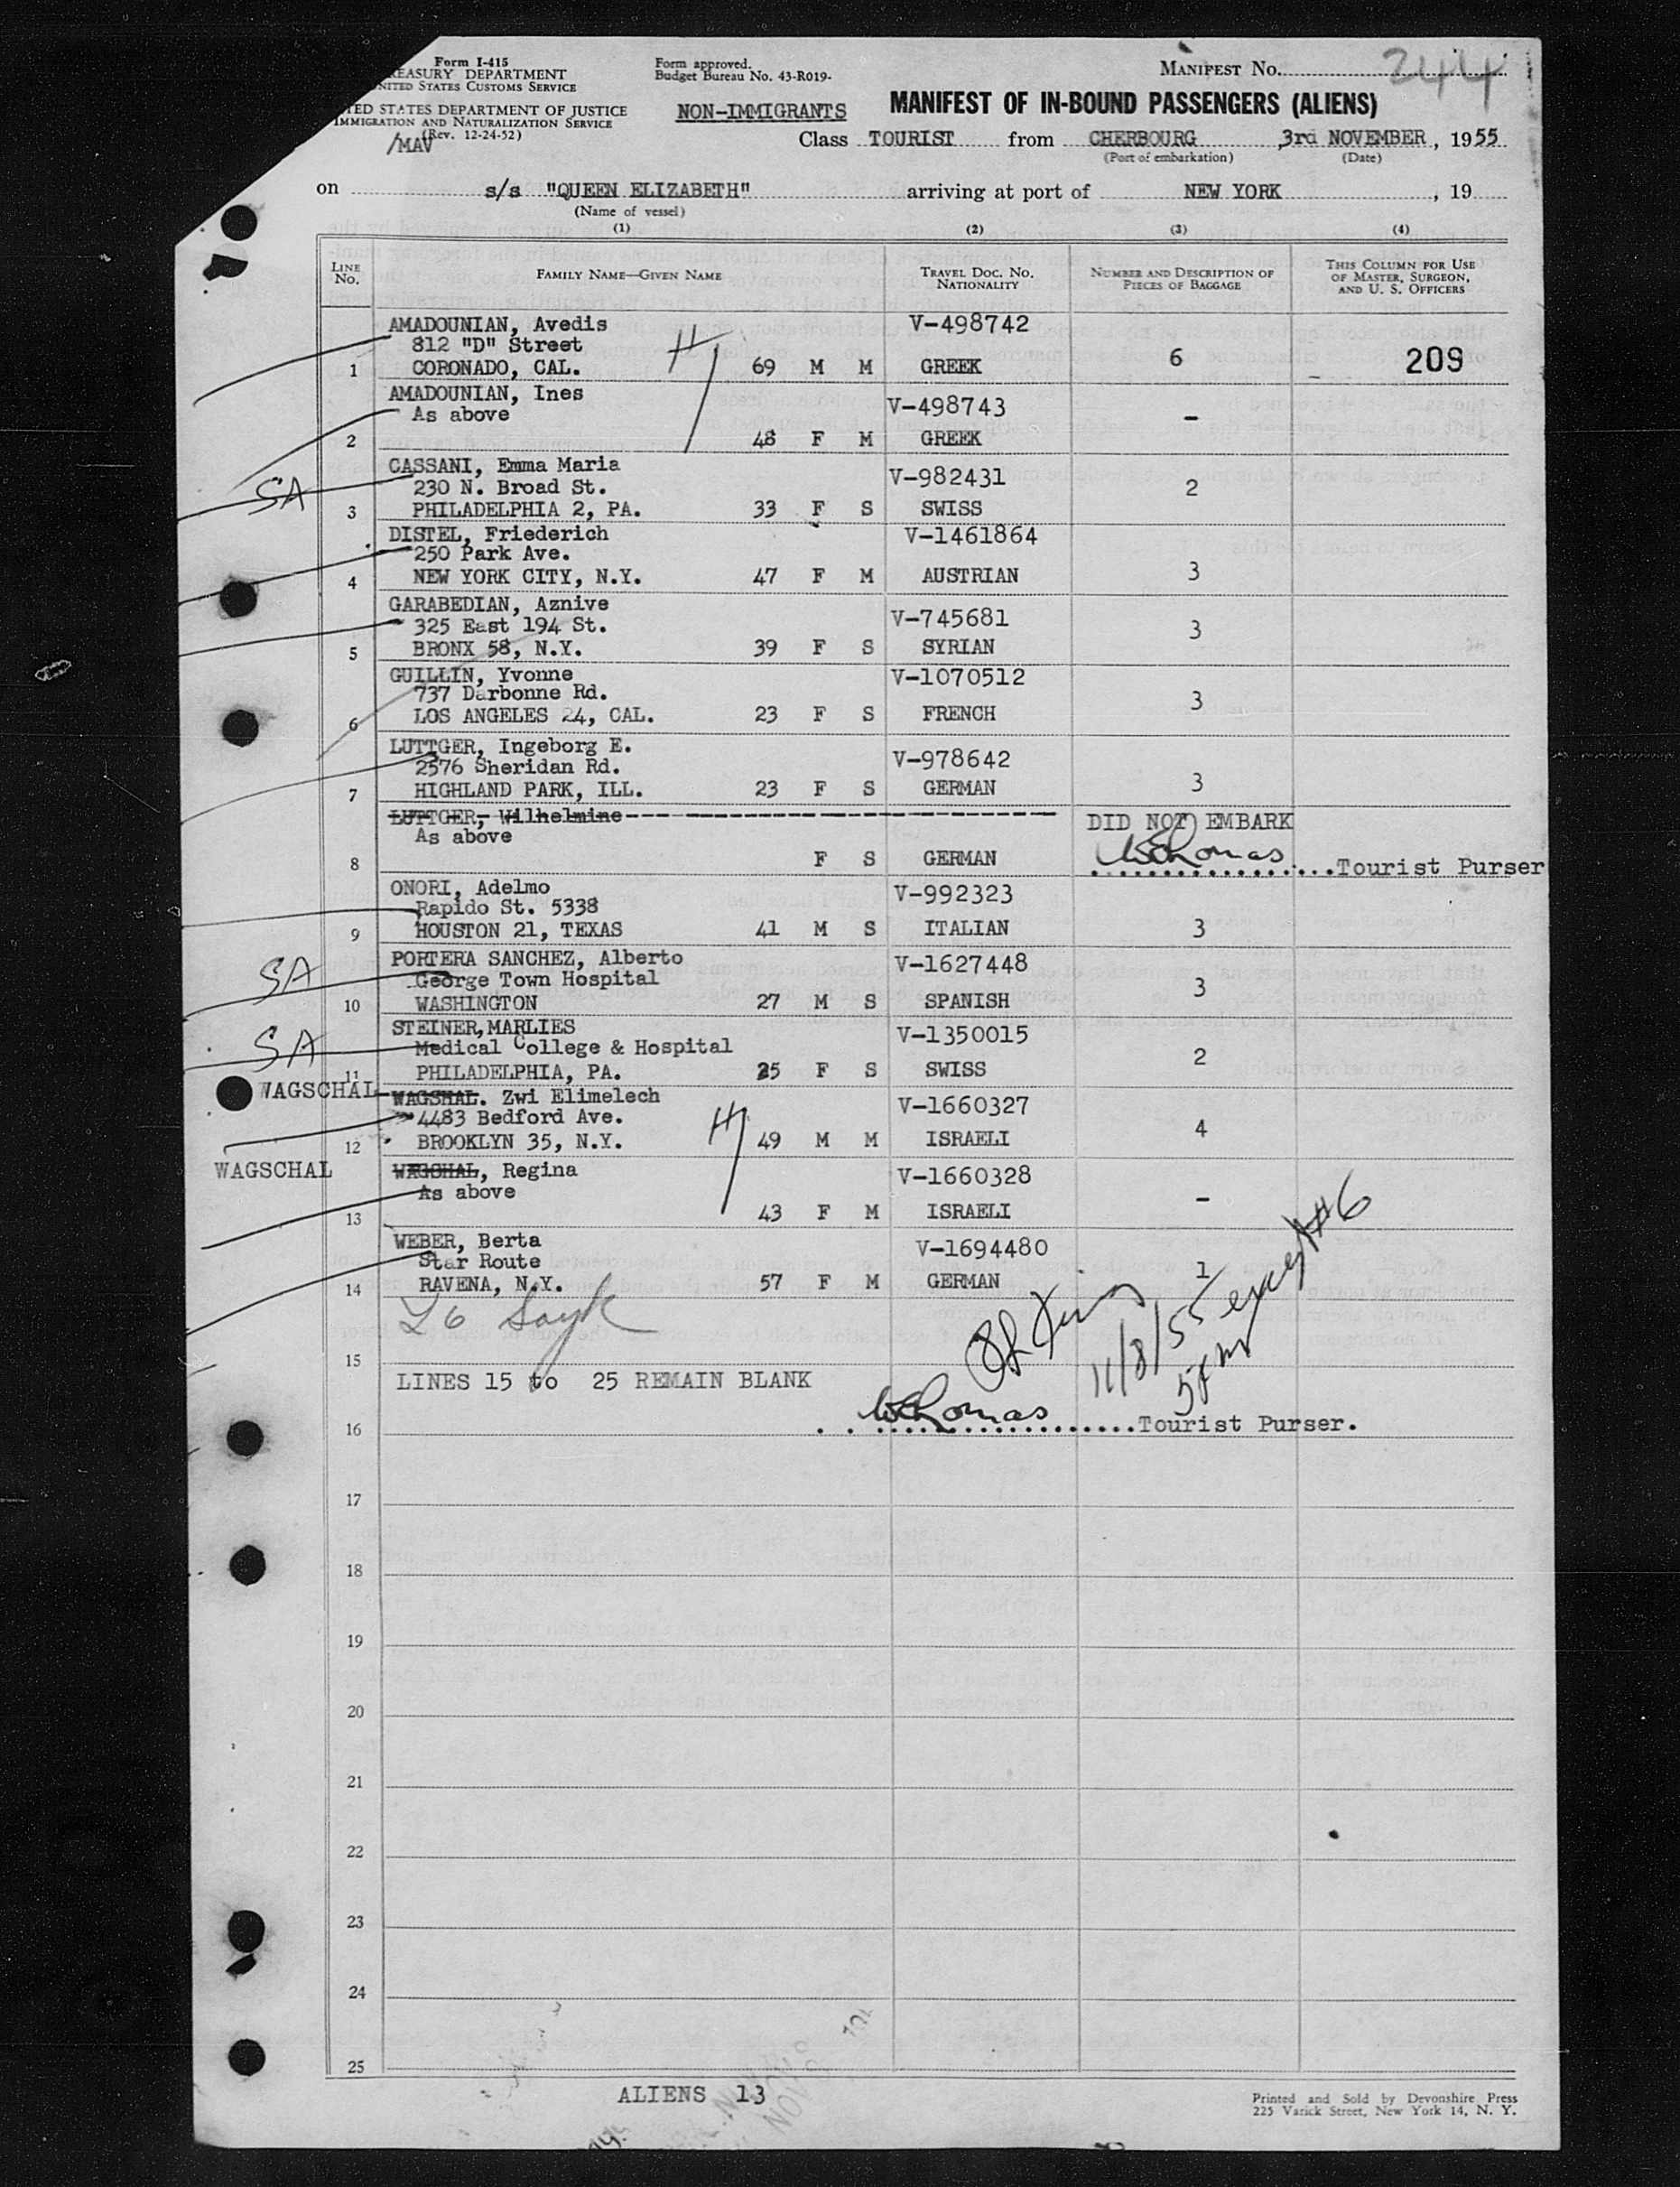 Form I-415
TREASURY DEPARTMENT
UNITED STATES CUSTOMS SERVICE
UNITED STATES DEPARTMENT OF JUSTICE
IMMIGRATION AND NATURALIZATION SERVICE
(Rev. 12-24-52)
/MAV
Form approved.
Budget Bureau No. 43-R019-
NON-IMMIGRANTS
MANIFEST NO. 244
MANIFEST OF IN-BOUND PASSENGERS (ALIENS)
Class TOURIST from CHERBOURG, 3rd NOVEMBER, 1955
(Port of embarkation) (Date)
on s/s "QUEEN ELIZABETH" arriving at port of NEW YORK, 19
(Name of vessel)
(1) (2) (3) (4)
LINE NO. FAMILY NAME—GIVEN NAME TRAVEL DOC. NO. NATIONALITY NUMBER AND DESCRIPTION OF PIECES OF BAGGAGE THIS COLUMN FOR USE OF MASTER, SURGEON, AND U. S. OFFICERS
AMADOUNIAN, Avedis V-498742
812 "D" Street
1 CORONADO, CAL. 69 M M GREEK 6 209
AMADOUNIAN, Ines V-498743
As above -
2 48 F M GREEK
CASSANI, Emma Maria V-982431
SA 230 N. Broad St. 2
3 PHILADELPHIA 2, PA. 33 F S SWISS
DISTEL, Friederich V-1461864
250 Park Ave.
4 NEW YORK CITY, N.Y. 47 F M AUSTRIAN 3
GARABEDIAN, Aznive V-745681
325 East 194 St. 3
5 BRONX 58, N.Y. 39 F S SYRIAN
GUILLIN, Yvonne V-1070512
737 Darbonne Rd. 3
6 LOS ANGELES 24, CAL. 23 F S FRENCH
LUTTGER, Ingeborg E. V-978642
2576 Sheridan Rd.
7 HIGHLAND PARK, ILL. 23 F S GERMAN 3
LUTTGER, Wilhelmine DID NOT EMBARK
As above
8 F S GERMAN WThomas Tourist Purser
ONORI, Adelmo V-992323
Rapido St. 5338
9 HOUSTON 21, TEXAS 41 M S ITALIAN 3
PORTERA SANCHEZ, Alberto V-1627448
SA George Town Hospital 3
10 WASHINGTON 27 M S SPANISH
STEINER, MARLIES V-1350015
SA Medical College & Hospital 2
11 PHILADELPHIA, PA. 25 F S SWISS
WAGSCHAL WAGSHAL. Zwi Elimelech V-1660327
4483 Bedford Ave.
12 BROOKLYN 35, N.Y. 49 M M ISRAELI 4
WAGSCHAL WAGSHAL, Regina V-1660328
As above -
13 43 F M ISRAELI
WEBER, Berta V-1694480
Star Route 1
14 RAVENA, N.Y. 57 F M GERMAN
11/8/55 except #6
15
LINES 15 to 25 REMAIN BLANK
16 WThomas Tourist Purser.
17
18
19
20
21
22
23
24
25
ALIENS 13
Printed and Sold by Devonshire Press
225 Varick Street, New York 14, N. Y.